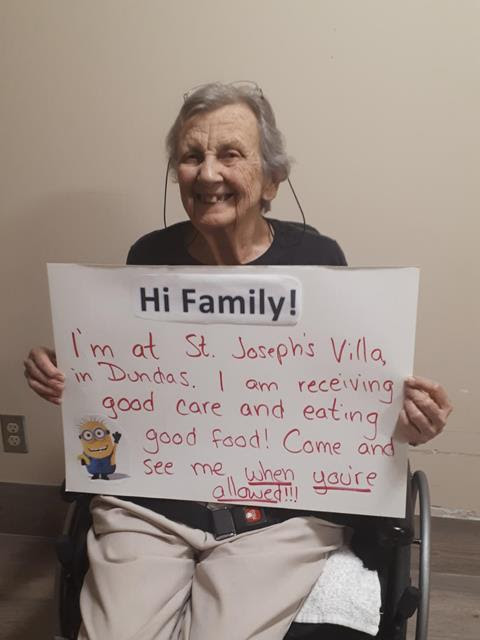 Hi Family!
I'm at St. Joseph's Villa,
in Dundas. I am receiving
good care and eating
good food! Come and
see me when you're
allowed!!!